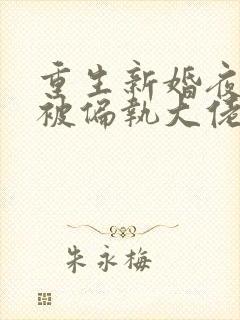 重生新婚夜
被偏执大佬
朱永梅